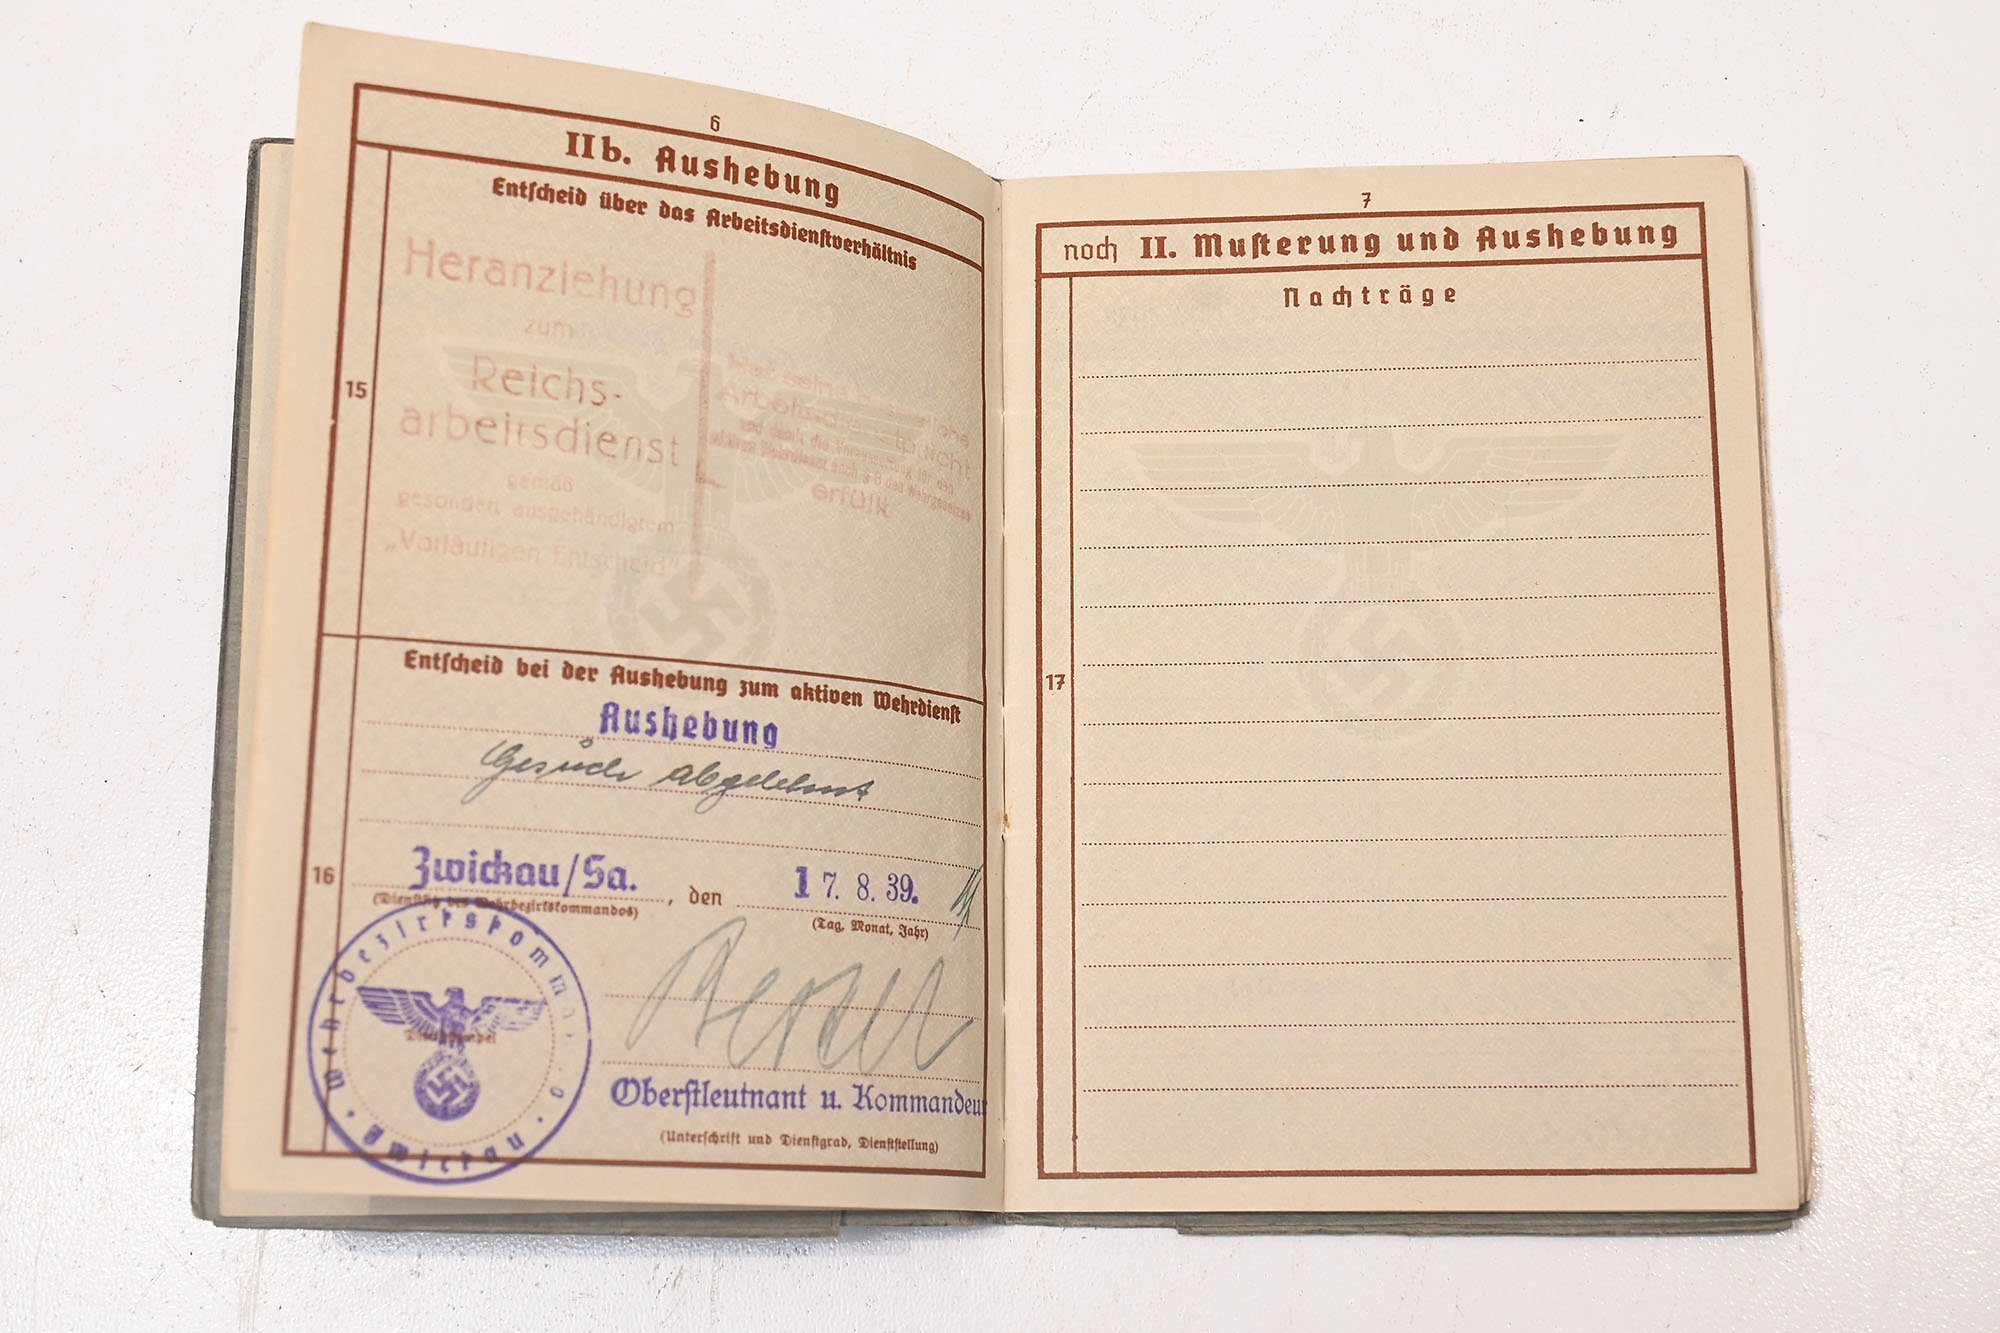 6
IIb. Aushebung
Entscheid über das Arbeitsdienstverhältnis
15
Heranziehung
zum
Reichs-
arbeitsdienst
gemäß
gesondert ausgehändigtem
„Vorläufigen Entscheid"
Hat seine
Arbeitsdienstpflicht
und damit die Voraussetzung für den
aktiven Wehrdienst nach § 8 des Wehrgesetzes
erfüllt
Entscheid bei der Aushebung zum aktiven Wehrdienst
16
Aushebung
Gesuch abgelehnt
Zwickau/Sa. , den 17. 8. 39.
(Dienstsitz des Wehrbezirkskommandos) (Tag, Monat, Jahr)
Wehrbezirkskommando
Zwickau
Dienststempel
Oberstleutnant u. Kommandeur
(Unterschrift und Dienstgrad, Dienststellung)
7
noch II. Musterung und Aushebung
Nachträge
17